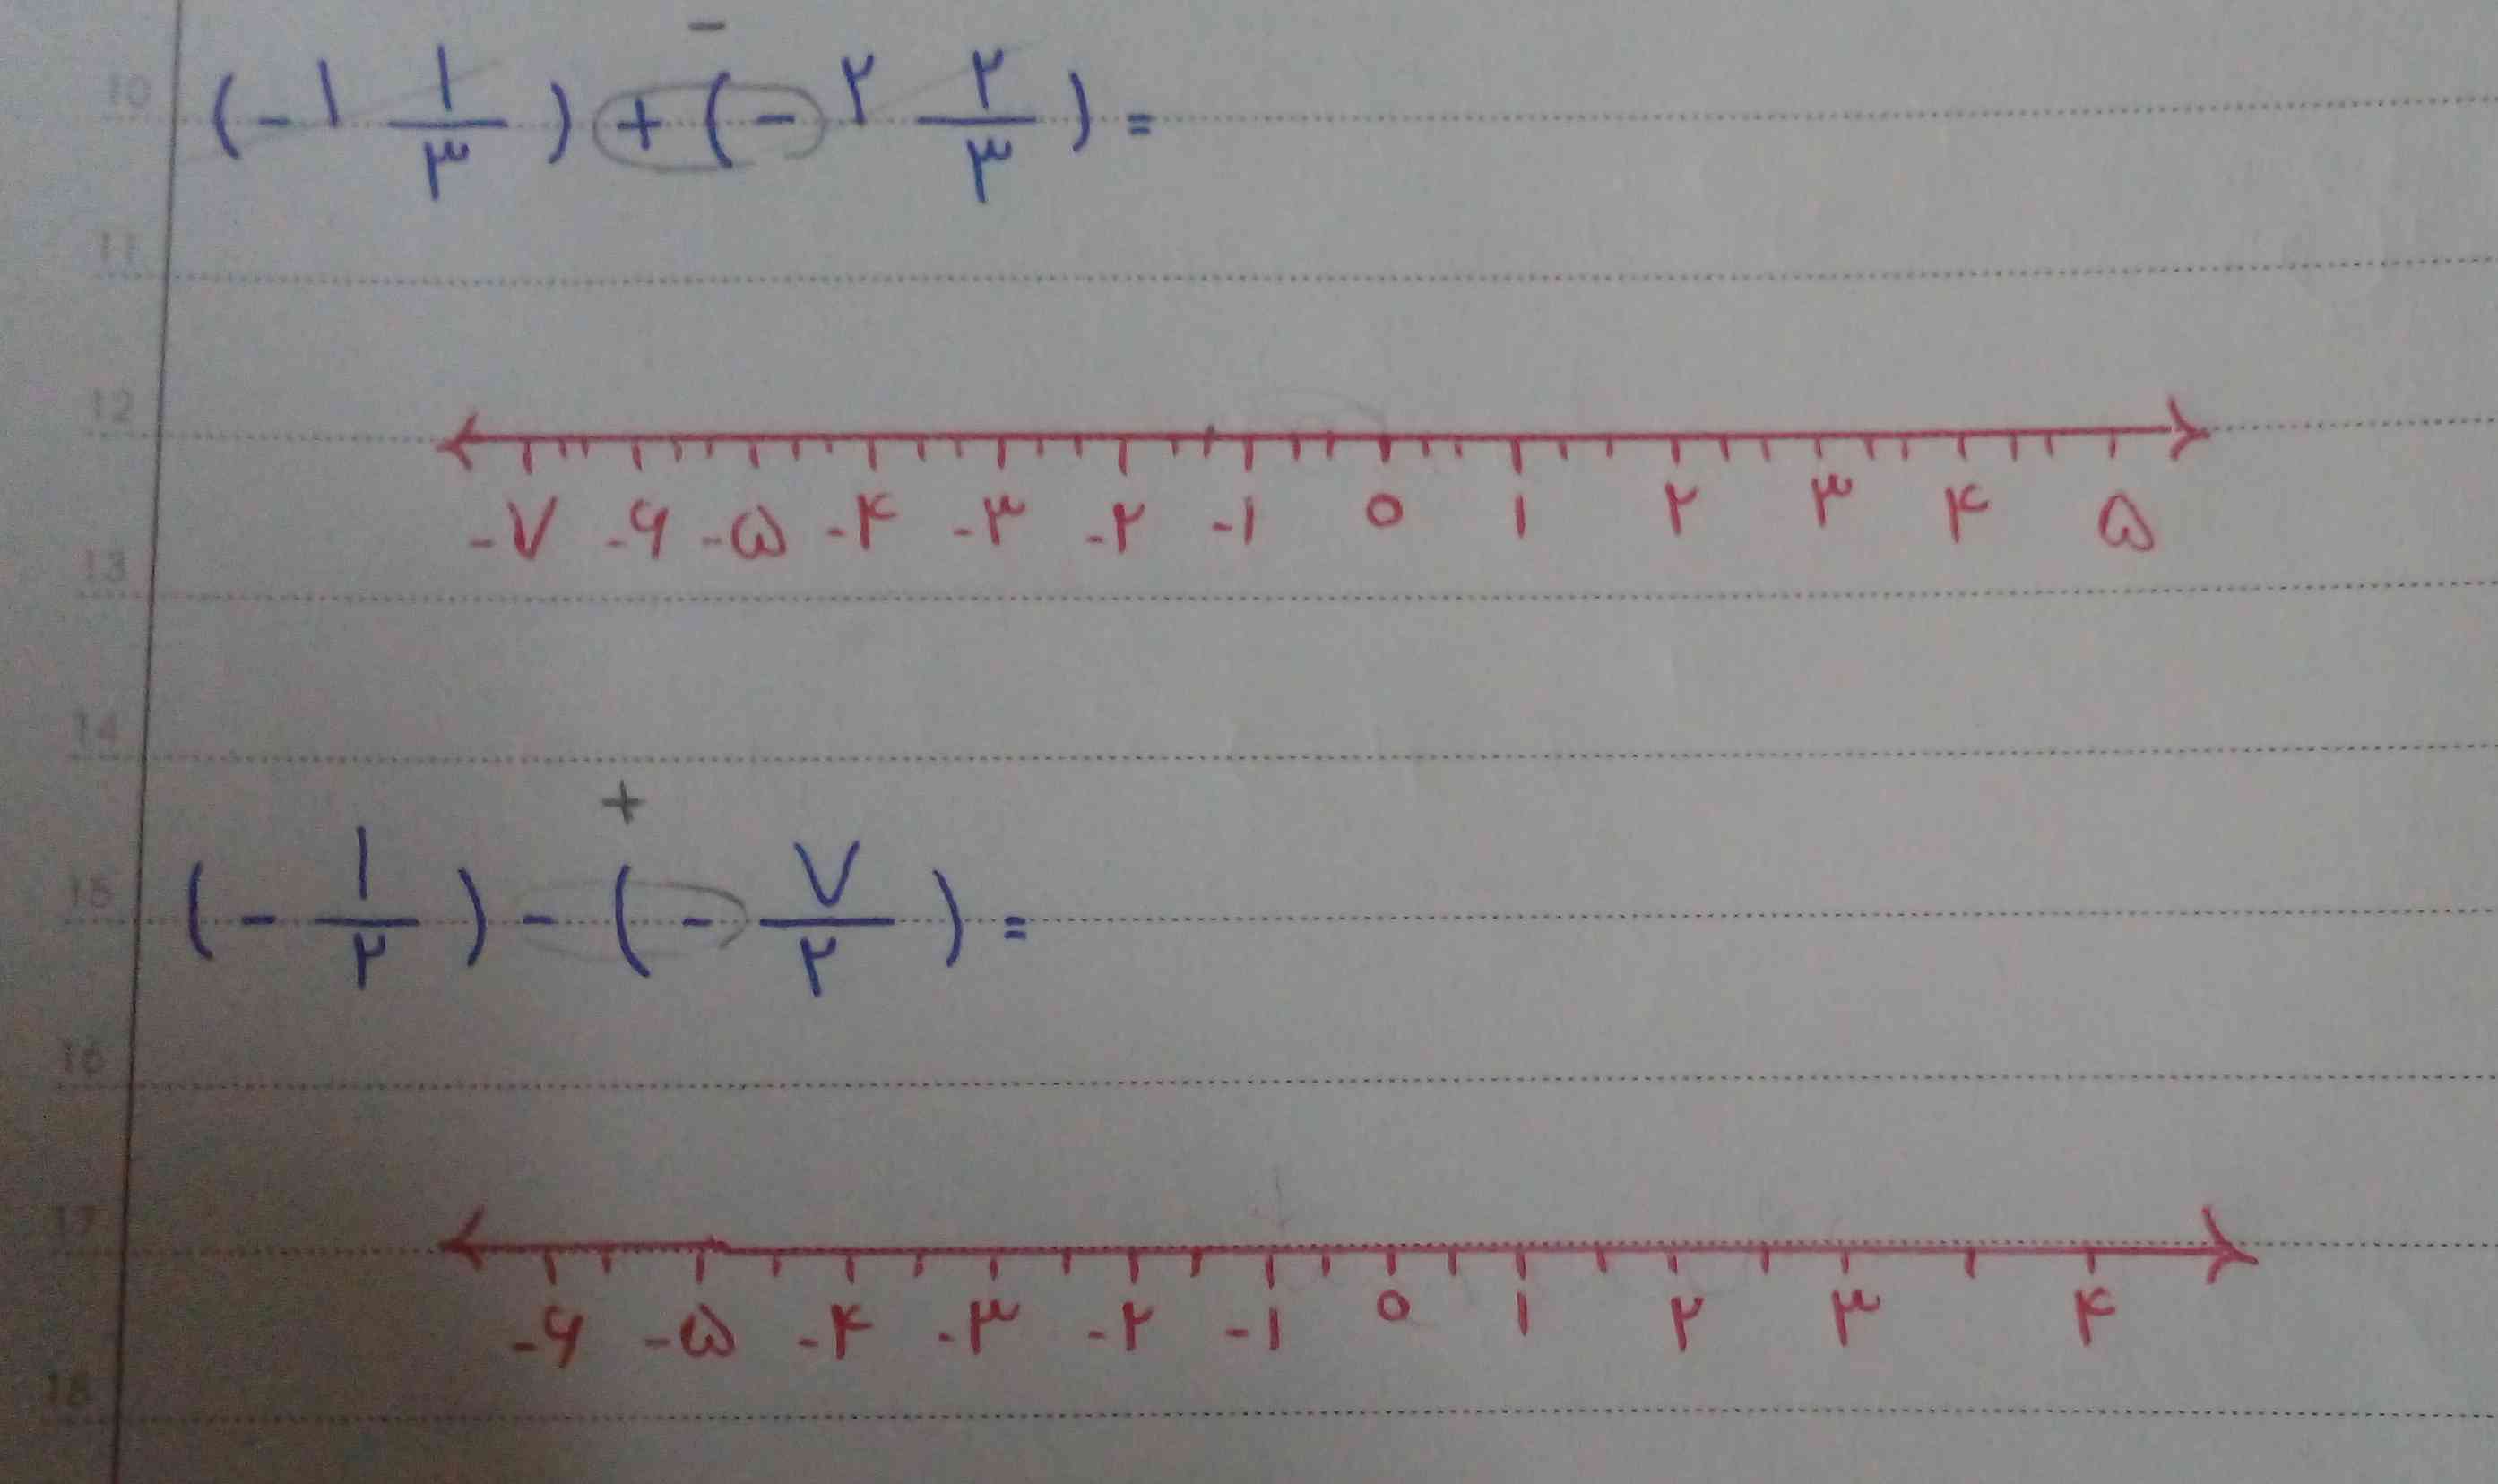 10
−
(-۱ ۱/۳) + (-۲ ۲/۳) =
11
12
-۷ -۶ -۵ -۴ -۳ -۲ -۱ ۰ ۱ ۲ ۳ ۴ ۵
13
14
+
15 (-۱/۲) - (-۷/۲) =
16
17
-۶ -۵ -۴ -۳ -۲ -۱ ۰ ۱ ۲ ۳ ۴
18